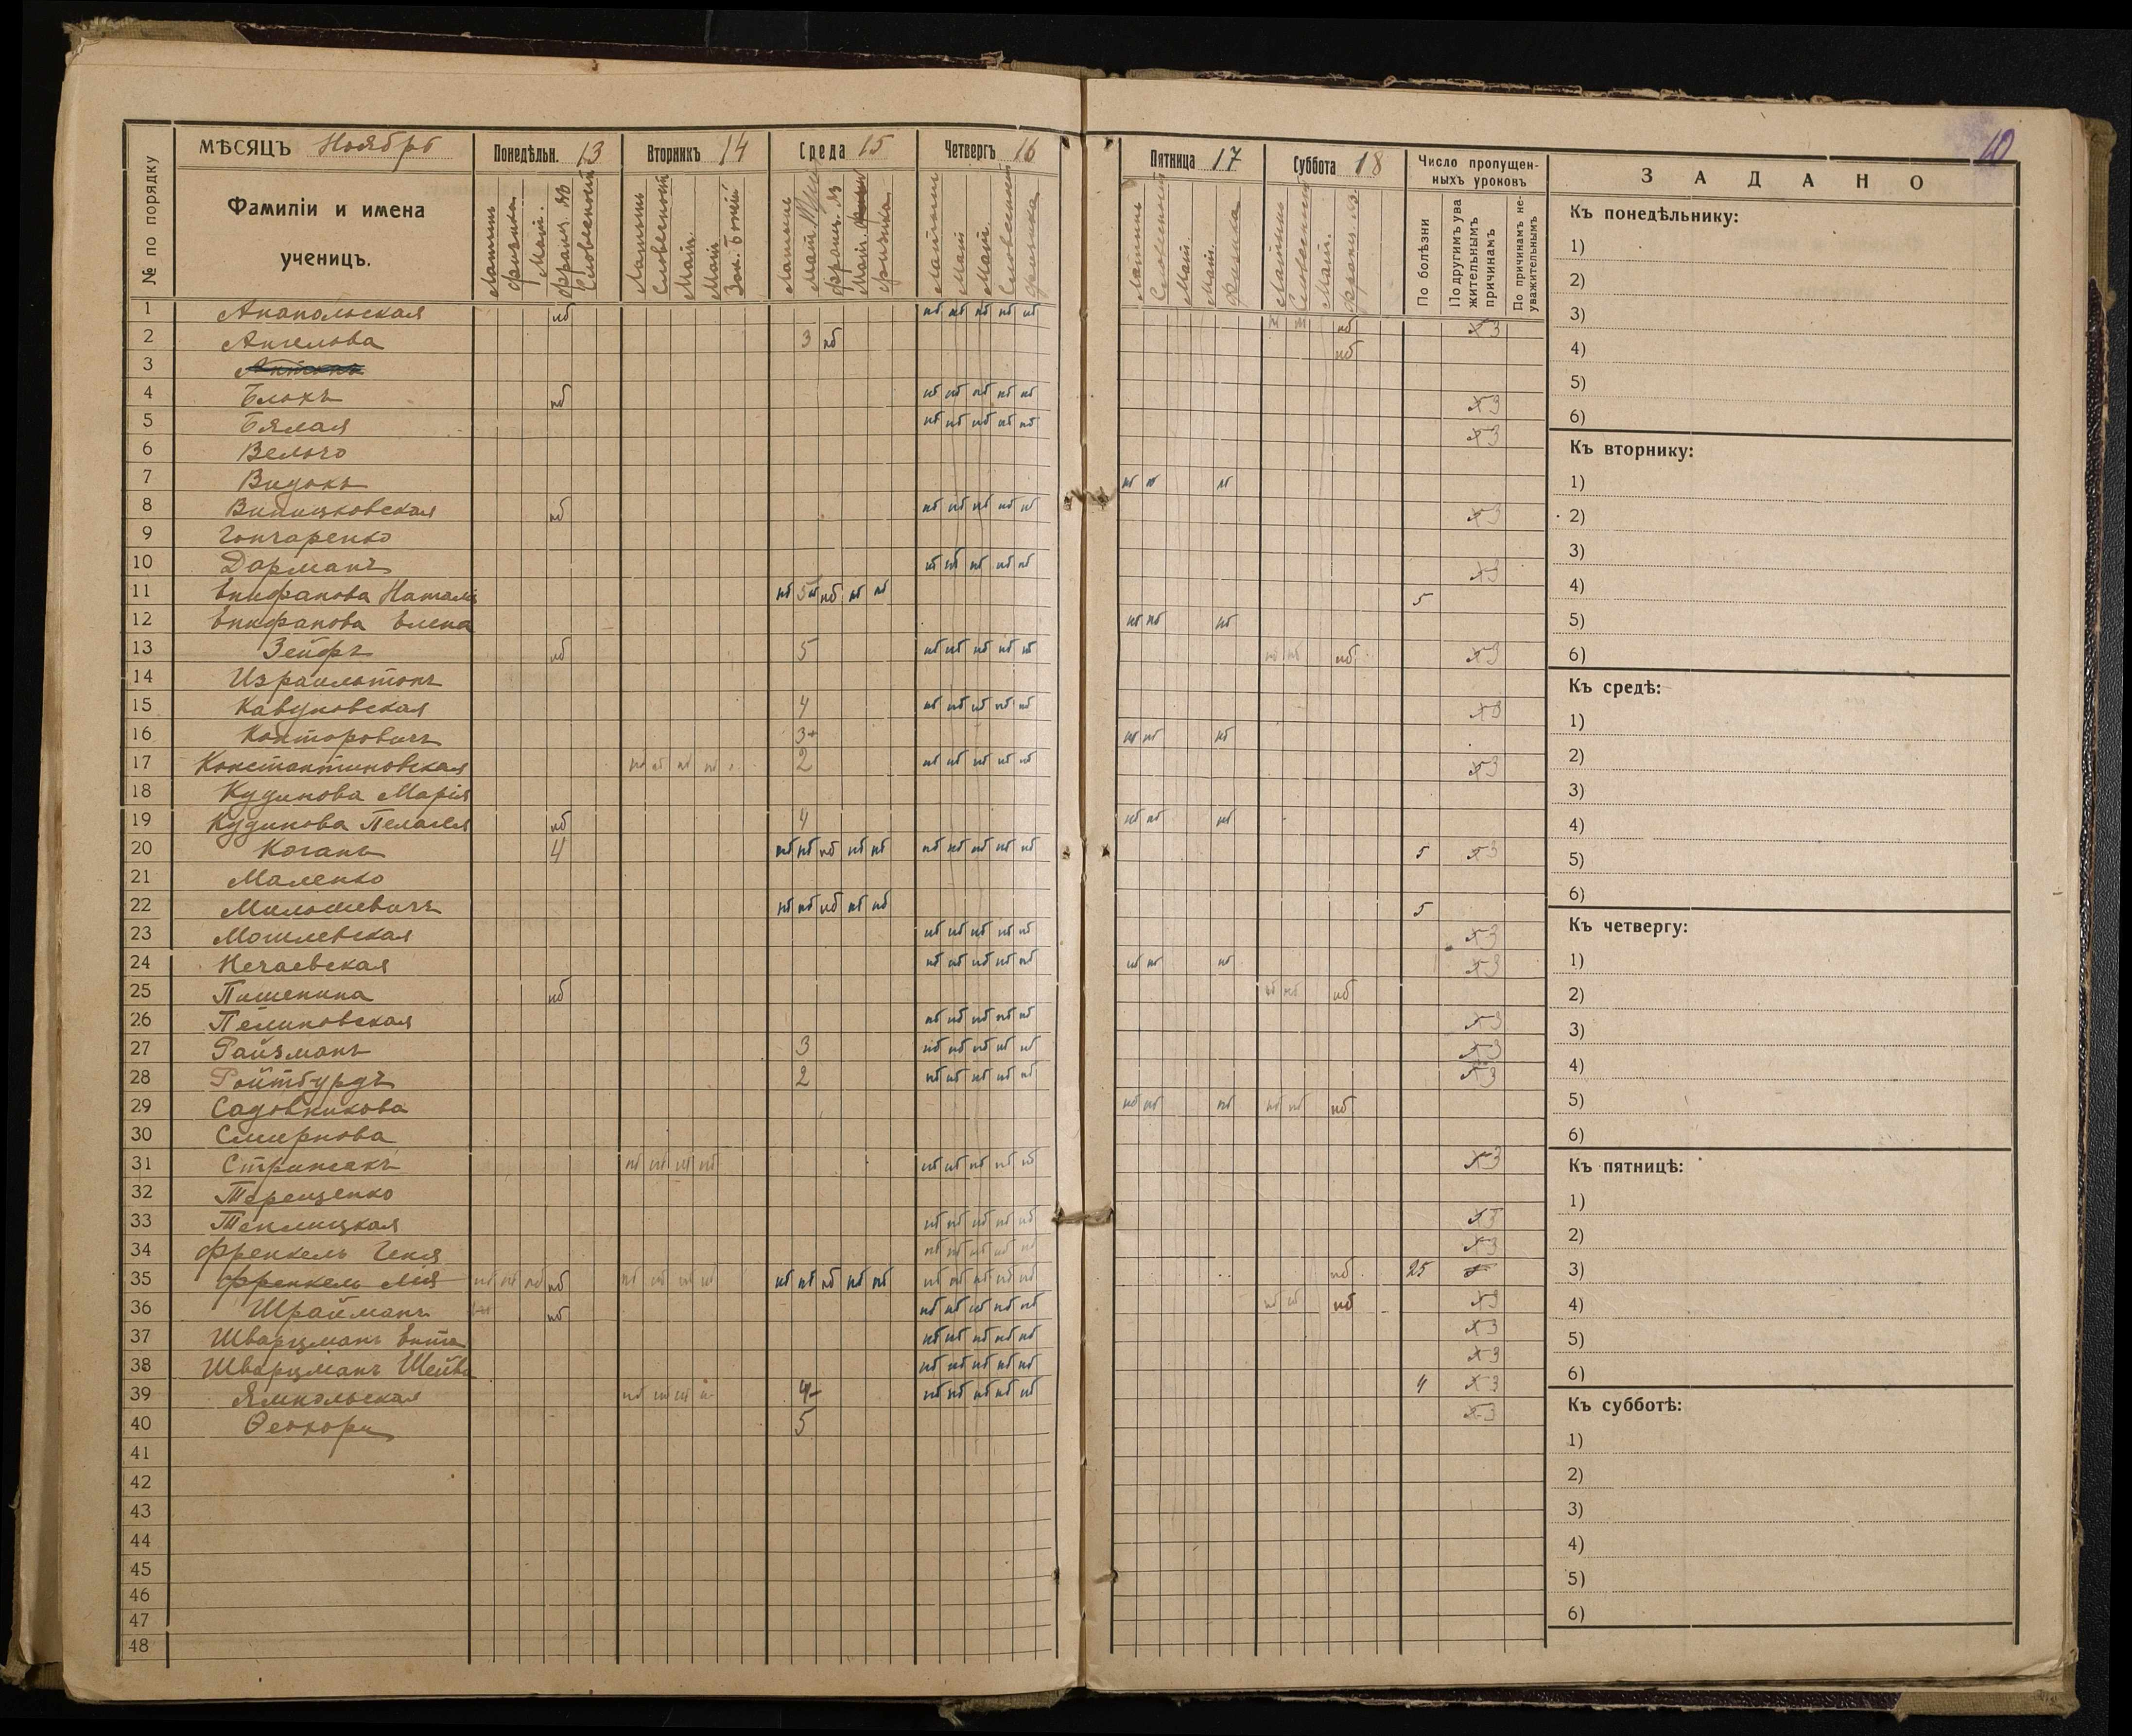 10
МѢСЯЦЪ Ноябрь
№ по порядку
Фамиліи и имена
ученицъ.
Понедѣльн. 13
Вторникъ 14
Среда 15
Четвергъ 16
Пятница 17
Суббота 18
Число пропущен-
ныхъ уроковъ
По болѣзни
По другимъ ува
жительнымъ
причинамъ
По причинамъ не-
уважительнымъ
ЗАДАНО
1 Анапольская нб нб нб нб нб нб нб х3
2 Ангелова 3 нб нб
3
4 Блокъ нб нб нб нб нб нб х3
5 Бялая нб нб нб нб нб х3
6 Вельго
7 Видокъ нб нб нб
8 Виницковская нб нб нб нб нб нб х3
9 Гончаренко
10 Дорманъ нб нб нб нб нб х3
11 Епифанова Наталія нб 5 нб нб нб нб 5
12 Епифанова Елена нб нб нб
13 Зейфъ нб 5 нб нб нб нб нб нб нб нб х3
14 Израильтонъ
15 Кавуновская 4 нб нб нб нб нб х3
16 Конторовичъ 3+ нб нб нб
17 Константиновская нб нб нб нб 2 нб нб нб нб нб х3
18 Кудинова Марія
19 Кудинова Пелагея нб 4 нб нб нб
20 Коганъ 4 нб нб нб нб нб нб нб нб нб нб 5 х3
21 Маленко
22 Милошевичъ нб нб нб нб нб 5
23 Могилевская нб нб нб нб нб х3
24 Нечаевская нб нб нб нб нб нб нб нб х3
25 Пишенина нб нб нб нб
26 нб нб нб нб нб х3
27 Райзманъ 3 нб нб нб нб нб х3
28 Ройтбурдъ 2 нб нб нб нб нб х3
29 Садовникова нб нб нб нб нб нб
30 Смирнова
31 Стрижакъ нб нб нб нб нб нб нб нб нб х3
32 Терещенко
33 Теплицкая нб нб нб нб нб х3
34 Френкель Геня нб нб нб нб нб х3
35 Френкель Лія нб нб нб нб нб нб нб нб нб нб нб нб нб нб нб нб нб нб нб 25
36 Шрайманъ нб нб нб нб нб нб нб нб нб х3
37 Шварцманъ Ента нб нб нб нб нб х3
38 Шварцманъ Шейва нб нб нб нб нб х3
39 Ямпольская нб нб нб н- 4- нб нб нб нб нб 4 х3
40 Ѳеохори 5 х3
41
42
43
44
45
46
47
48
Къ понедѣльнику:
1)
2)
3)
4)
5)
6)
Къ вторнику:
1)
2)
3)
4)
5)
6)
Къ средѣ:
1)
2)
3)
4)
5)
6)
Къ четвергу:
1)
2)
3)
4)
5)
6)
Къ пятницѣ:
1)
2)
3)
4)
5)
6)
Къ субботѣ:
1)
2)
3)
4)
5)
6)